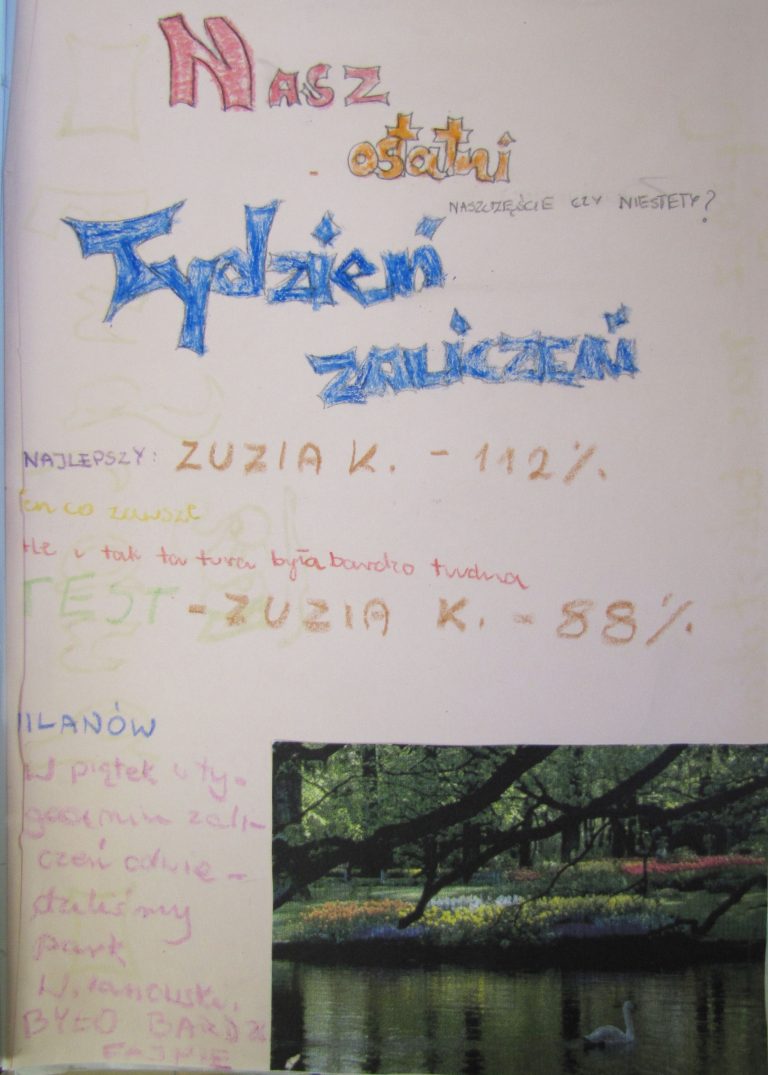 Nasz
ostatni
NASZCZĘŚCIE CZY NIESTETY?
Tydzień
zaliczeń
NAJLEPSZY: ZUZIA K. - 112%
en co zawsze
tle i tak ta tura była bardzo trudna
TEST - ZUZIA K. - 88%
ILANÓW
W piątek w ty-
godniu zali-
czeń odwie-
dziliśmy
park
Wilanowski.
BYŁO BARDZ
FAJNIE